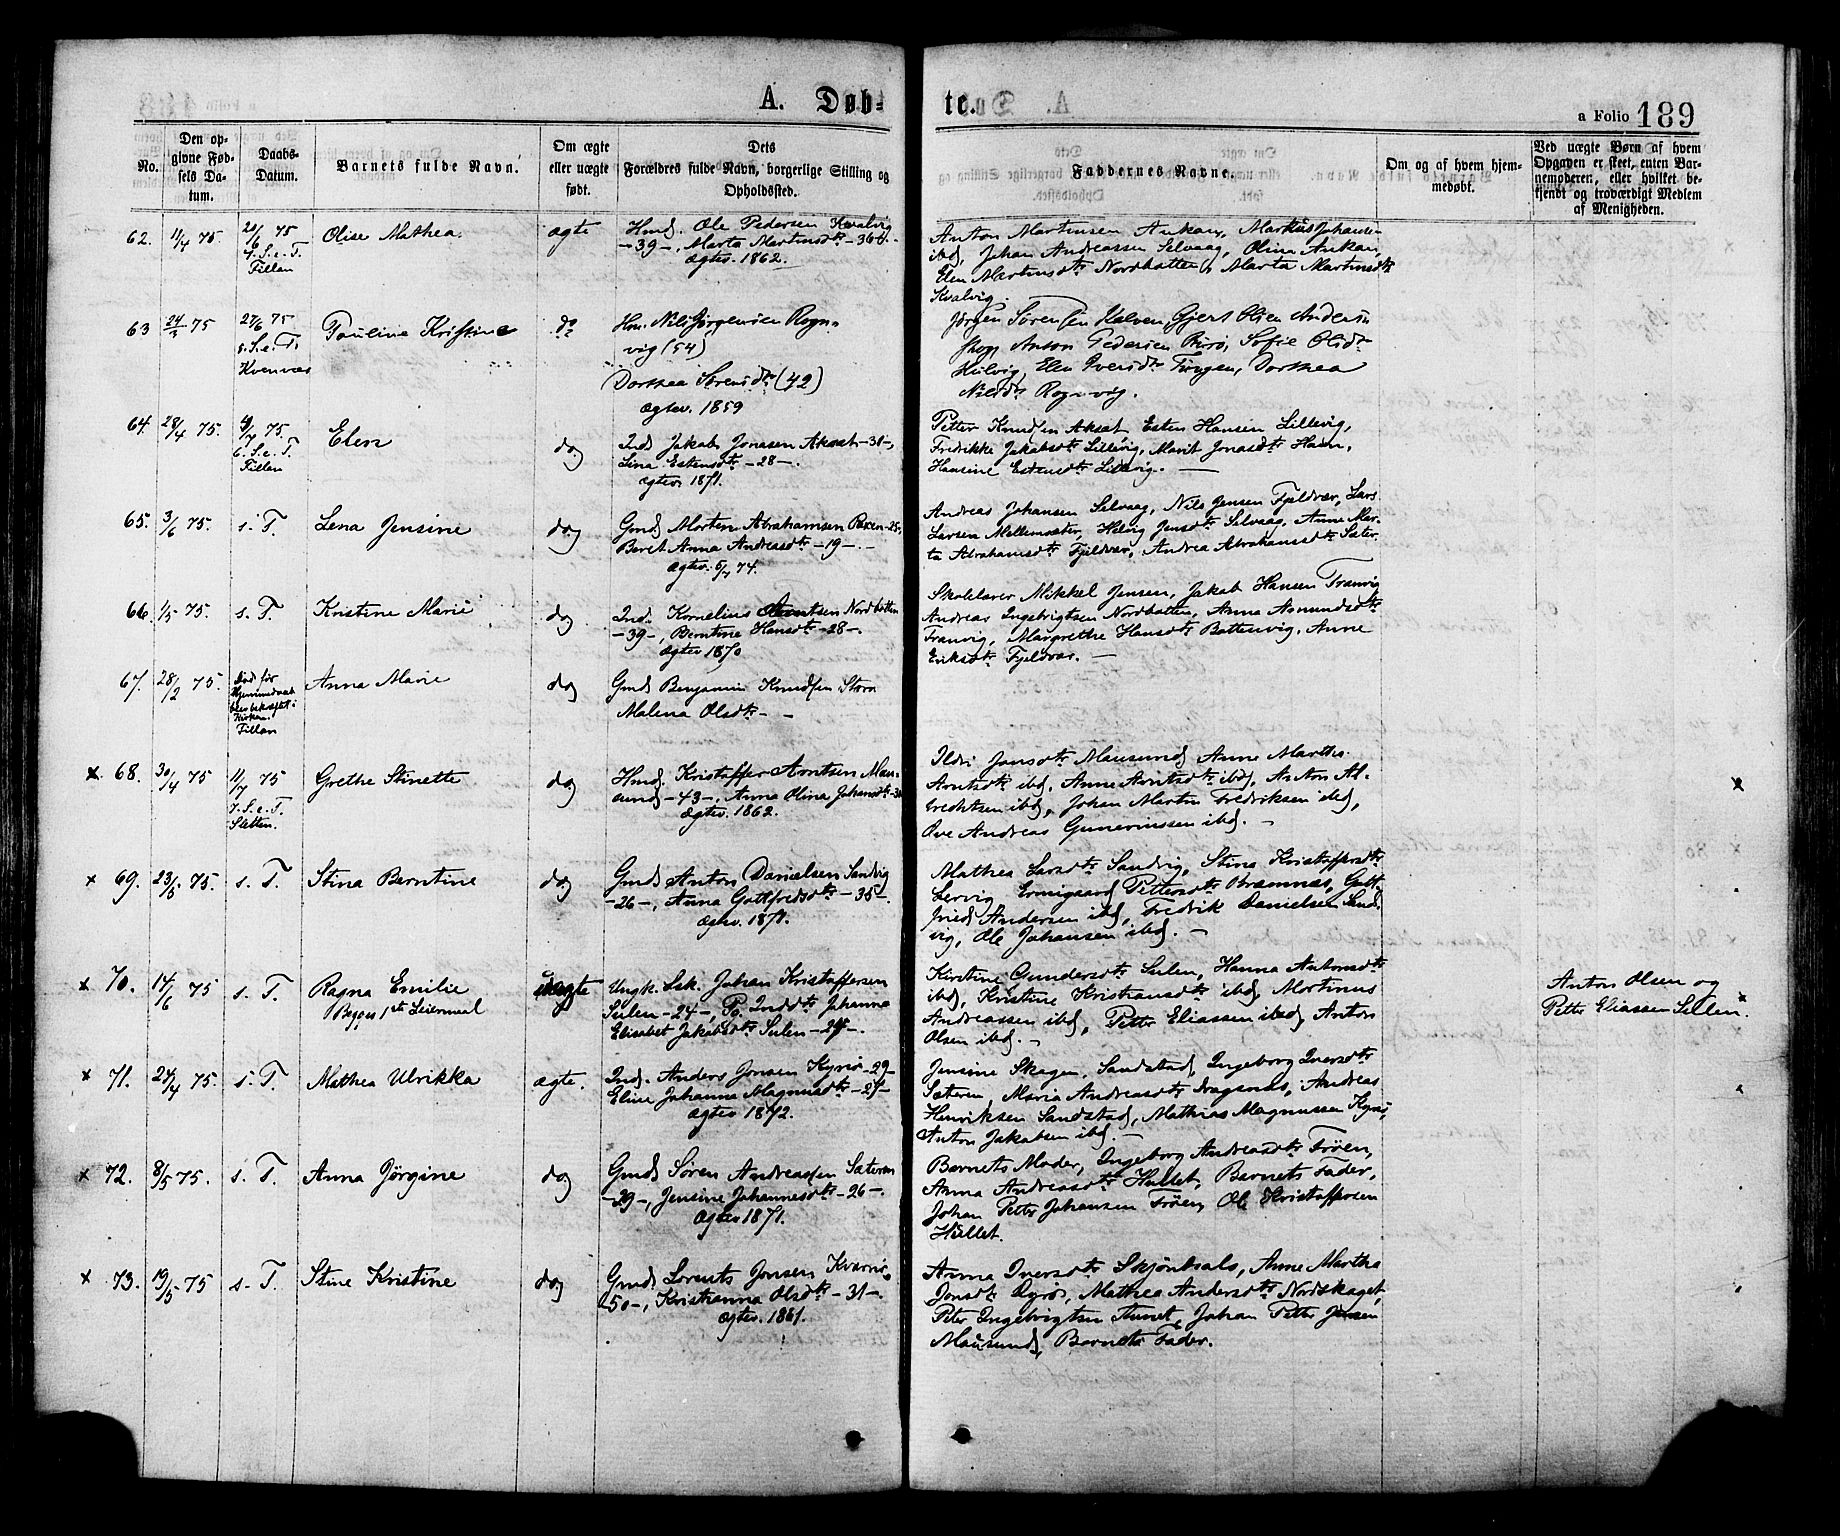 A. Døb-
te.
a Folio 189
No.
Den op-
givne Fød-
sels Da-
tum.
Daabs-
Datum.
Barnets fulde Navn.
Om ægte
eller uægte
født.
Dets
Forældres fulde Navn, borgerlige Stilling og
Opholdssted.
Faddernes Navne.
Om og af hvem hjem-
medøbt.
Ved uægte Børn af hvem
Opgaven er skeet, enten Bar-
nemoderen, eller hvilket be-
kjendt og troværdigt Medlem
af Menigheden.
62. 11/4 75
20/6 75
4. S. e. T.
Fillan
Olise Mathea.
ægte
Hmd. Ole Pedersen Kvalvig
-39-, Marta Martinsdtr -36-.
Ægtev. 1862.
Anton Martinsen Ankan, Markus Johansen
ibd, Johan Andreassen Selvaag, Olina Ankan,
Elen Martinsdtr Nordbotten, Marta Martinsdtr
Kvalvig.
63 24/3 75
27/6 75
5. S. e. T.
Kvenvær
Pauline Kristine
do
Hm. Nils Jørgensen Rogn-
vig (54)
Dorthea Sørensdtr (42)
Ægtev. 1859
Jørgen Sørensen Kalven, Gjert Olsen Anders-
skog, Anton Pedersen Burø, Sofie Olsdtr
Hulvig, Elen Iversdtr Tingen, Dorthea
Nilsdtr Rognvig.
64. 28/4 75.
4/7 75.
6. S. e. T.
Fillan
Elen
do
Ind. Jakob Jonasen Akset -31-,
Lina Estensdtr -28-.
Ægtev. 1871.
Petter Knudsen Akset, Esten Hansen Lillevig,
Fredrikke Jakobsdtr Lillevig, Marit Jonasdtr Havn,
Hansine Estensdtr Lillevig. —
65. 3/6 75.
s. T.
Lena Jensine
do
Gmd Morten Abrahamsen -25,
Beret Anna Andreasdtr -19-.
Ægtev. 5/7 74.
Andreas Johansen Selvaag, Nils Jensen Fjeldvær, Lars
Larsen Mellemsæter, Helvig Jensdtr Selvaag, Anne Mar-
ta Abrahamsdtr Fjeldvær, Andrea Abrahamsdtr Sæter
66. 1/5 75.
s. T.
Kristine Marie
do
Ind. Kornelius Arntsen Nordbotten
-39-, Berntine Hansdtr -28-.
Ægtev 1870
Skolelærer Mikkel Jensen, Jakob Hansen Tranvig
Andreas Ingebrigtsen Nordbotten, Anna Asmundsdtr
Tranvig, Margrethe Hansdtr Bottenvig, Anne
Eriksdtr Fjeldvær. —
67. 28/2 75.
Død før
Hjemmedaab
blev bekræftet i
Kirken.
Fillan
Anna Marie
do
Gmd Benjamin Knudsen Storø
Malena Olsdtr - -
x 68. 30/4 75
11/7 75
7. S. e. T.
Sletten.
Grethe Stinette
do
Hmd. Kristoffer Arntsen Mau-
sund -43-, Anna Olina Johansdtr -3
Ægtev. 1862.
Ildri Jonsdtr Mausund, Anne Martha
Arntsdtr ibd, Anne Arntsdtr ibd, Anton Al-
brechtsen ibd, Johan Martin Fredriksen ibd,
Ove Andreas Gunneriussen ibd. —
x
x 69. 23/5 75.
s. T.
Stina Berntine
do
Gmd Anton Danielsen Sandvig
-26-, Anna Gottfredsdtr -35-.
Ægtev. 1871.
Mathea Larsdtr Sandvig, Stina Kristoffersdtr
Lervig Ermigaard Pettersdtr Bremnæs, Gott-
fried Andersen ibd, Fredrik Danielsen Sand-
vig, Ole Johansen ibd. —
x 70. 17/6 75
s. T.
Ragna Emilie
Begges 1ste Leiermaal
uægte
Ungk. Lsk. Johan Kristoffersen
Sulen -24-, Pg. Inddtr Johanna
Elisabet Jakobsdtr Sulen
Kirstine Gundersdtr Sulen, Hanna Antonsdtr
ibd, Kristine Kristiansdtr ibd, Mortinus
Andreassen ibd, Petter Eliassen ibd, Anton
Olsen ibd. —
Anton Olsen og
Petter Eliassen Sulen.
x
x 71. 24/4 75.
s. T.
Mathea Ulrikka
ægte.
Ind. Anders Jonsen Kyrø -29-
Eline Johanna Magnusdtr -27-
Ægtev 1872.
Jensine Skagen, Sandstad, Ingeborg Iversdtr
Sæteren, Maria Andreasdtr Dragsnæs, Andreas
Henriksen Sandstad, Mathias Magnussen Kyrø,
Anton Jakobsen ibd. —
x 72. 8/5 75.
s. T.
Anna Jørgine
do
Gmd Søren Andreassen Sæteren
-29-, Jensine Johannesdtr -26-.
Ægtev 1871.
Barnets Moder, Ingeborg Andreasdtr Frøen,
Anna Andreasdtr Hullet, Barnets Fader,
Johan Petter Johansen Frøen, Ole Kristoffersen
Hullet.
x 73. 19/5 75
s. T.
Stine Kristine
do
Gmd. Lorents Jensen Kvernø,
-50-, Kristianna Olsdtr -31-.
Ægtev. 1861.
Anna Iversdtr Skjøntsals, Anne Martha
Jonsdtr Dyrø, Mathea Andersdtr Nordskaget,
Peter Ingebrigtsen, Johan Petter Jensen
Mausund, Barnets Fader.